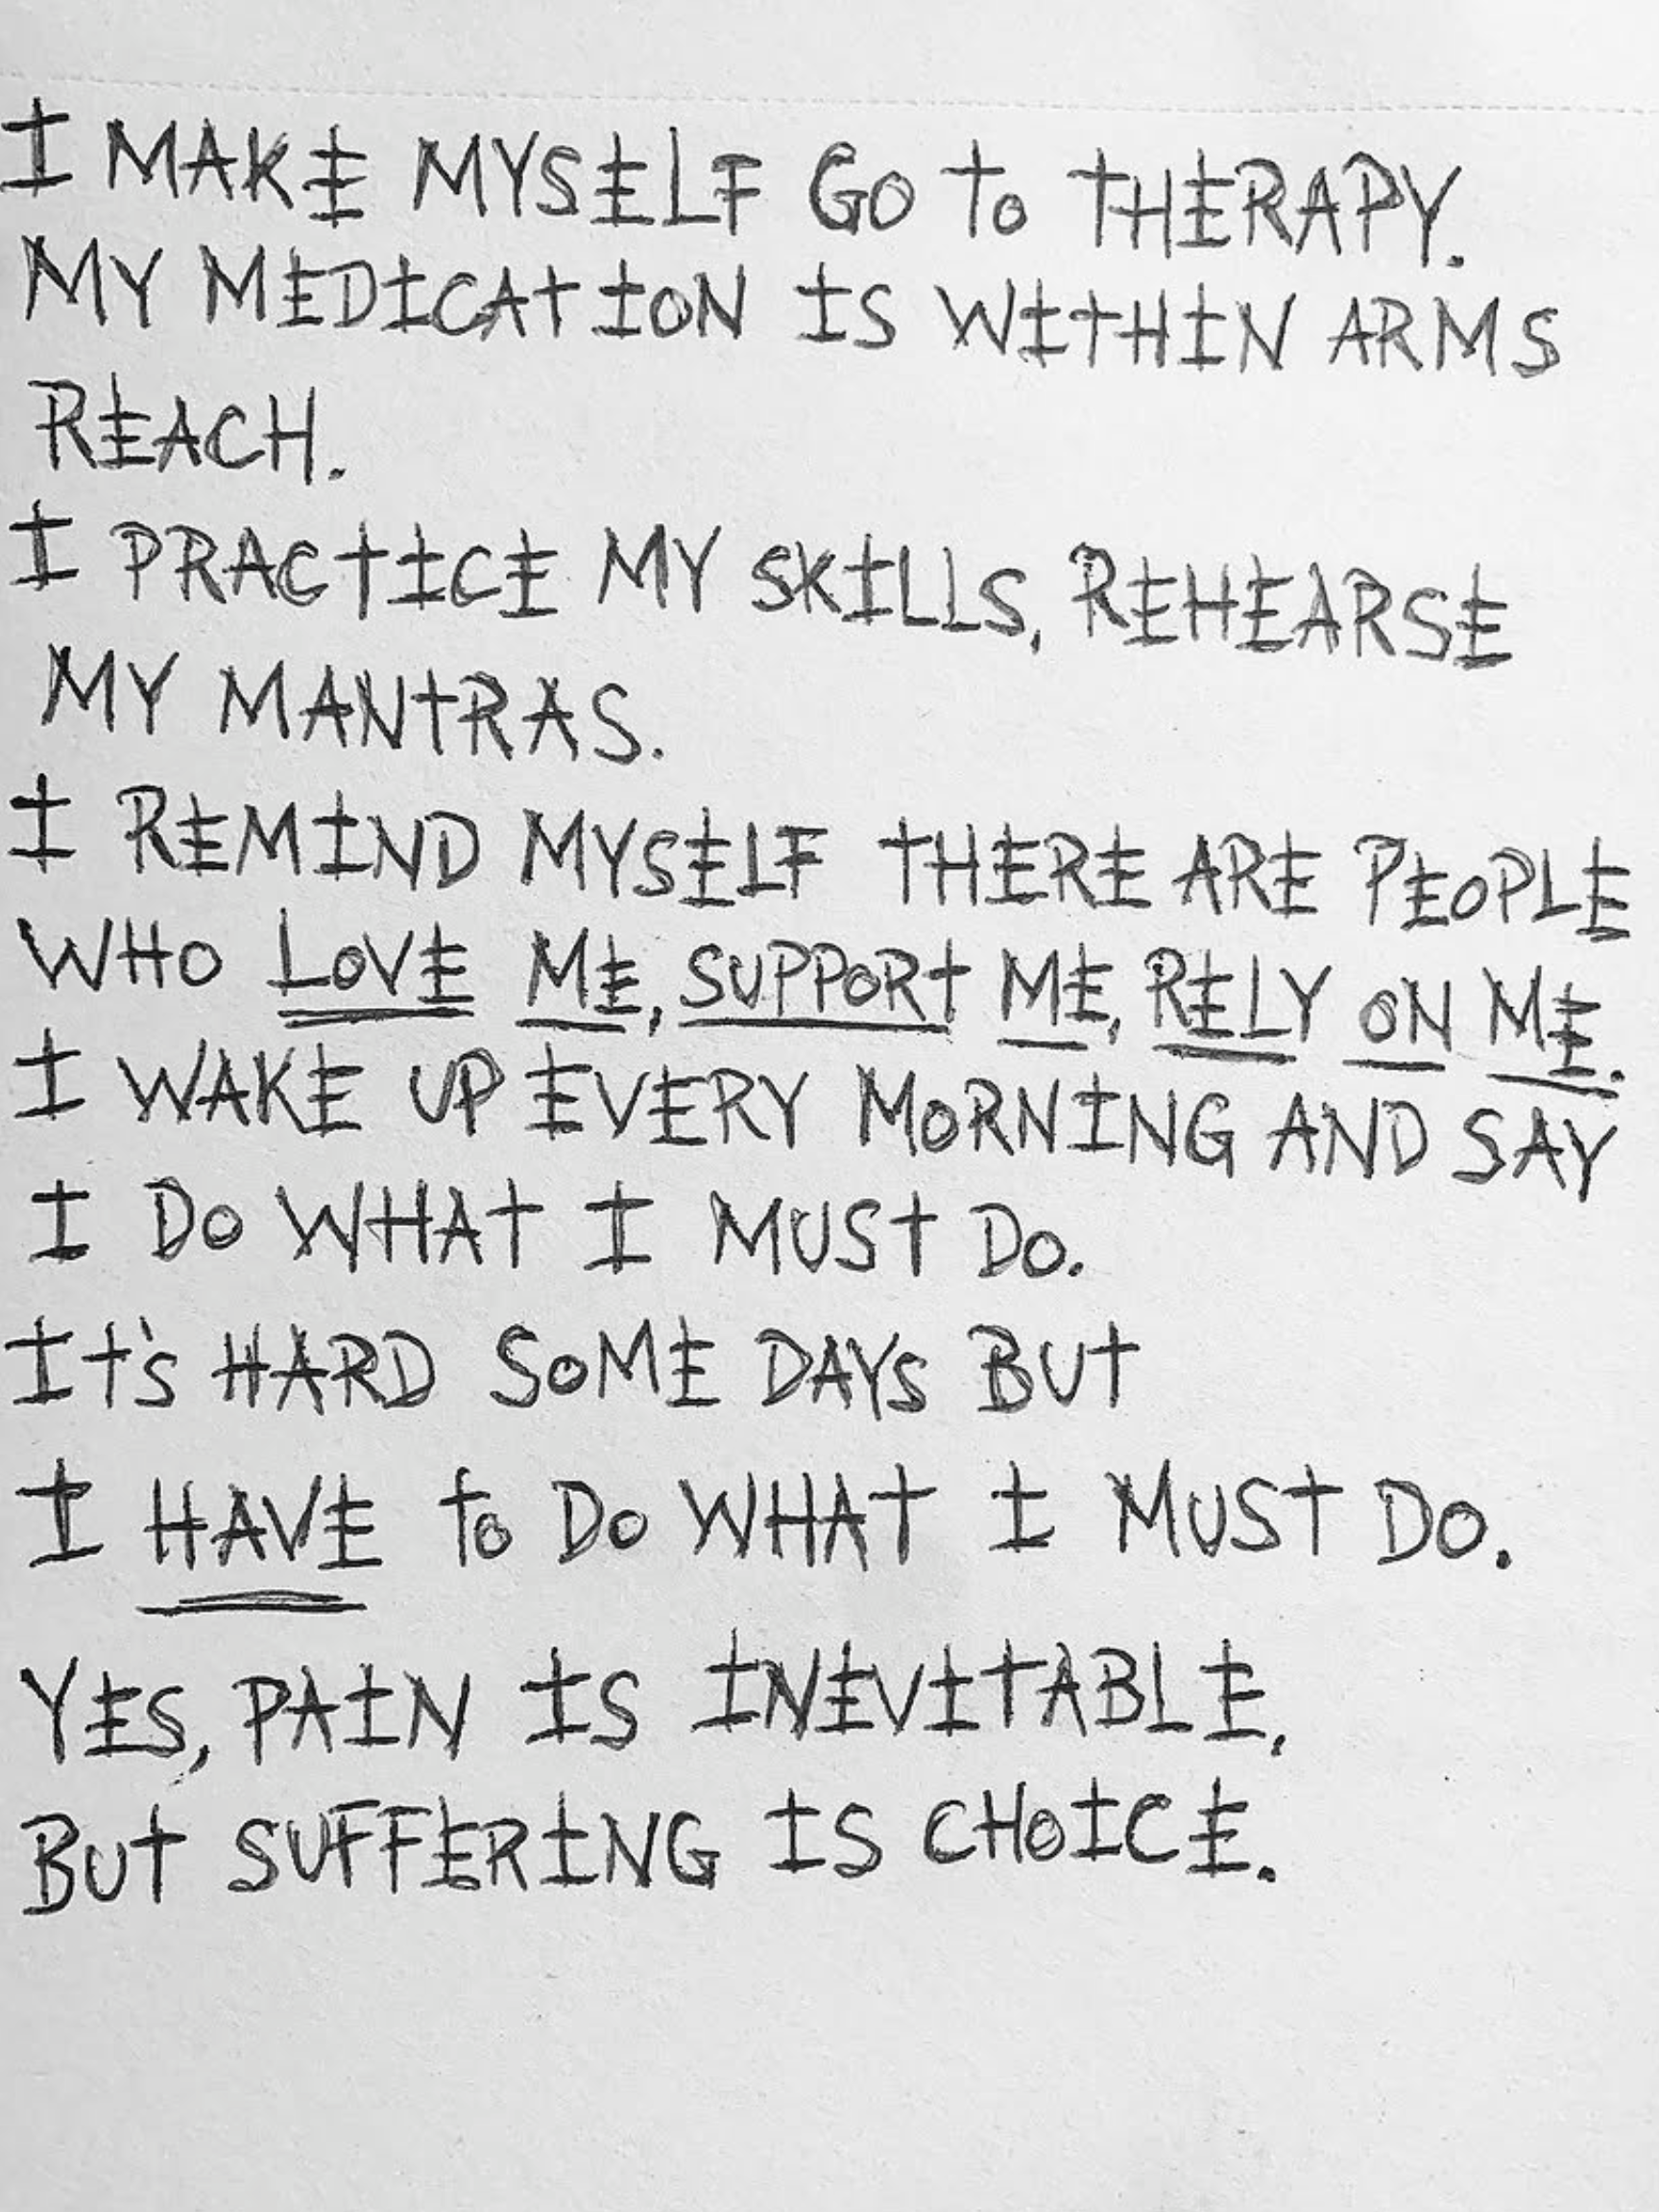 I MAKE MYSELF GO TO THERAPY.
MY MEDICATION IS WITHIN ARMS
REACH.
I PRACTICE MY SKILLS, REHEARSE
MY MANTRAS.
I REMIND MYSELF THERE ARE PEOPLE
WHO LOVE ME, SUPPORT ME, RELY ON ME.
I WAKE UP EVERY MORNING AND SAY
I DO WHAT I MUST DO.
IT'S HARD SOME DAYS BUT
I HAVE TO DO WHAT I MUST DO.
YES, PAIN IS INEVITABLE,
BUT SUFFERING IS CHOICE.